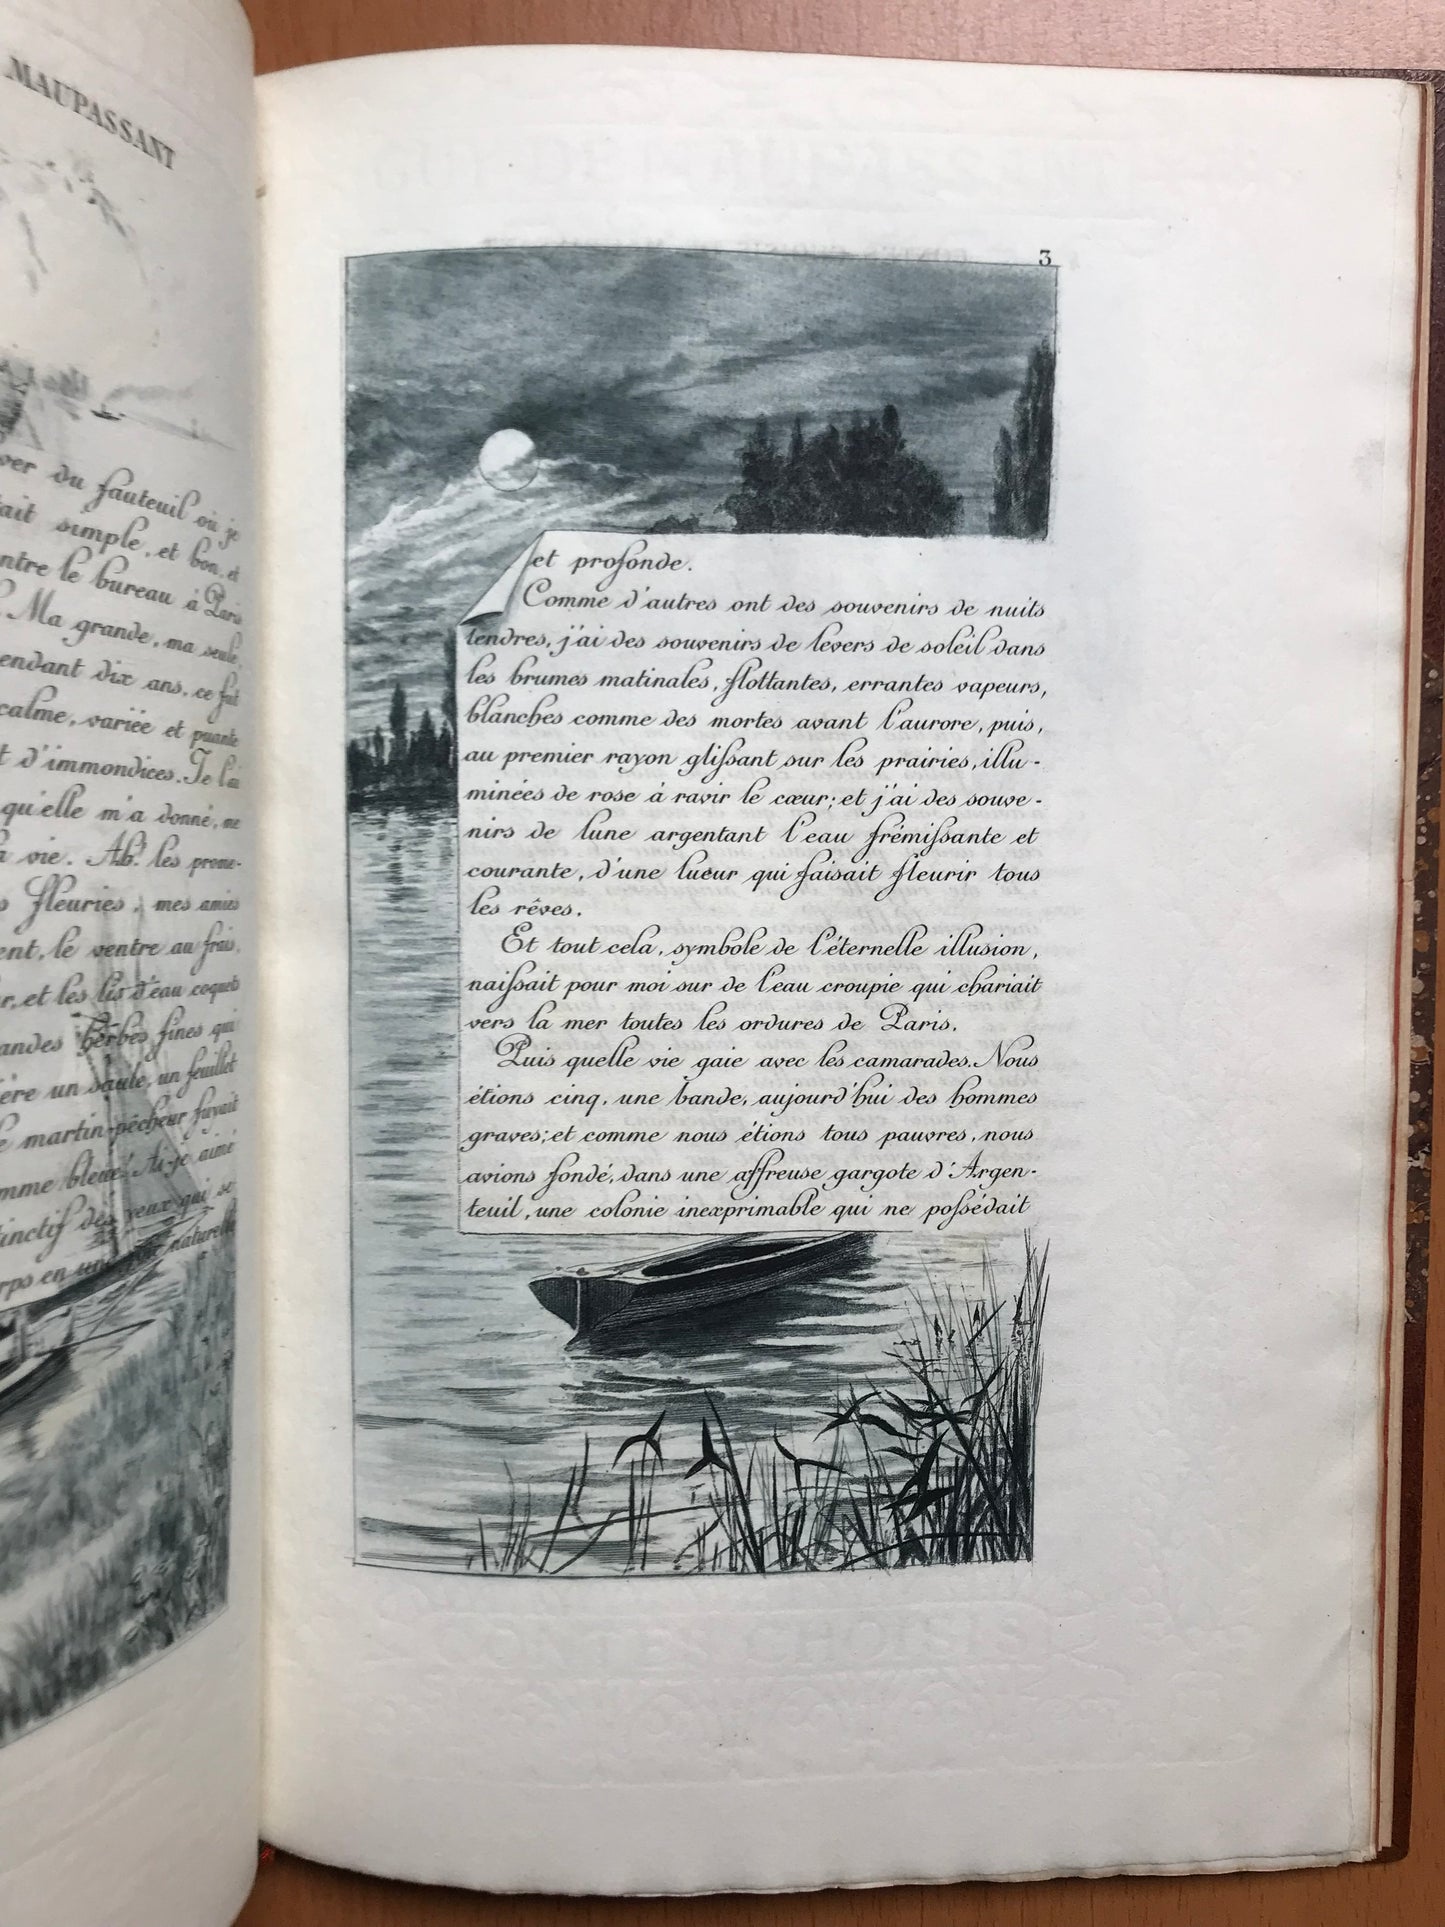 MAUPASSANT
ver du fauteuil où je
tait simple, et bon, et
ntre le bureau à Paris
. Ma grande, ma seule,
endant dix ans, ce fut
calme, variée et puante
t d'immondices. Je l'ai
qu'elle m'a donné, me
a vie. Ah! les prome-
s fleuries, mes amies
ent, le ventre au frais,
r, et les lis d'eau coquets
andes herbes fines qui
ière un saule, un feuillet
e martin-pêcheur fuyait
mme bleue! Ai-je aimé
tinctif des yeux qui se
orps en une joie naturelle
3
et profonde.
Comme d'autres ont des souvenirs de nuits
tendres, j'ai des souvenirs de levers de soleil dans
les brumes matinales, flottantes, errantes vapeurs,
blanches comme des mortes avant l'aurore, puis,
au premier rayon glissant sur les prairies, illu-
minées de rose à ravir le cœur; et j'ai des souve-
nirs de lune argentant l'eau frémissante et
courante, d'une lueur qui faisait fleurir tous
les rêves.
Et tout cela, symbole de l'éternelle illusion,
naissait pour moi sur de l'eau croupie qui chariait
vers la mer toutes les ordures de Paris.
Puis quelle vie gaie avec les camarades. Nous
étions cinq, une bande, aujourd'hui des hommes
graves; et comme nous étions tous pauvres, nous
avions fondé, dans une affreuse gargote d'Argen-
teuil, une colonie inexprimable qui ne possédait